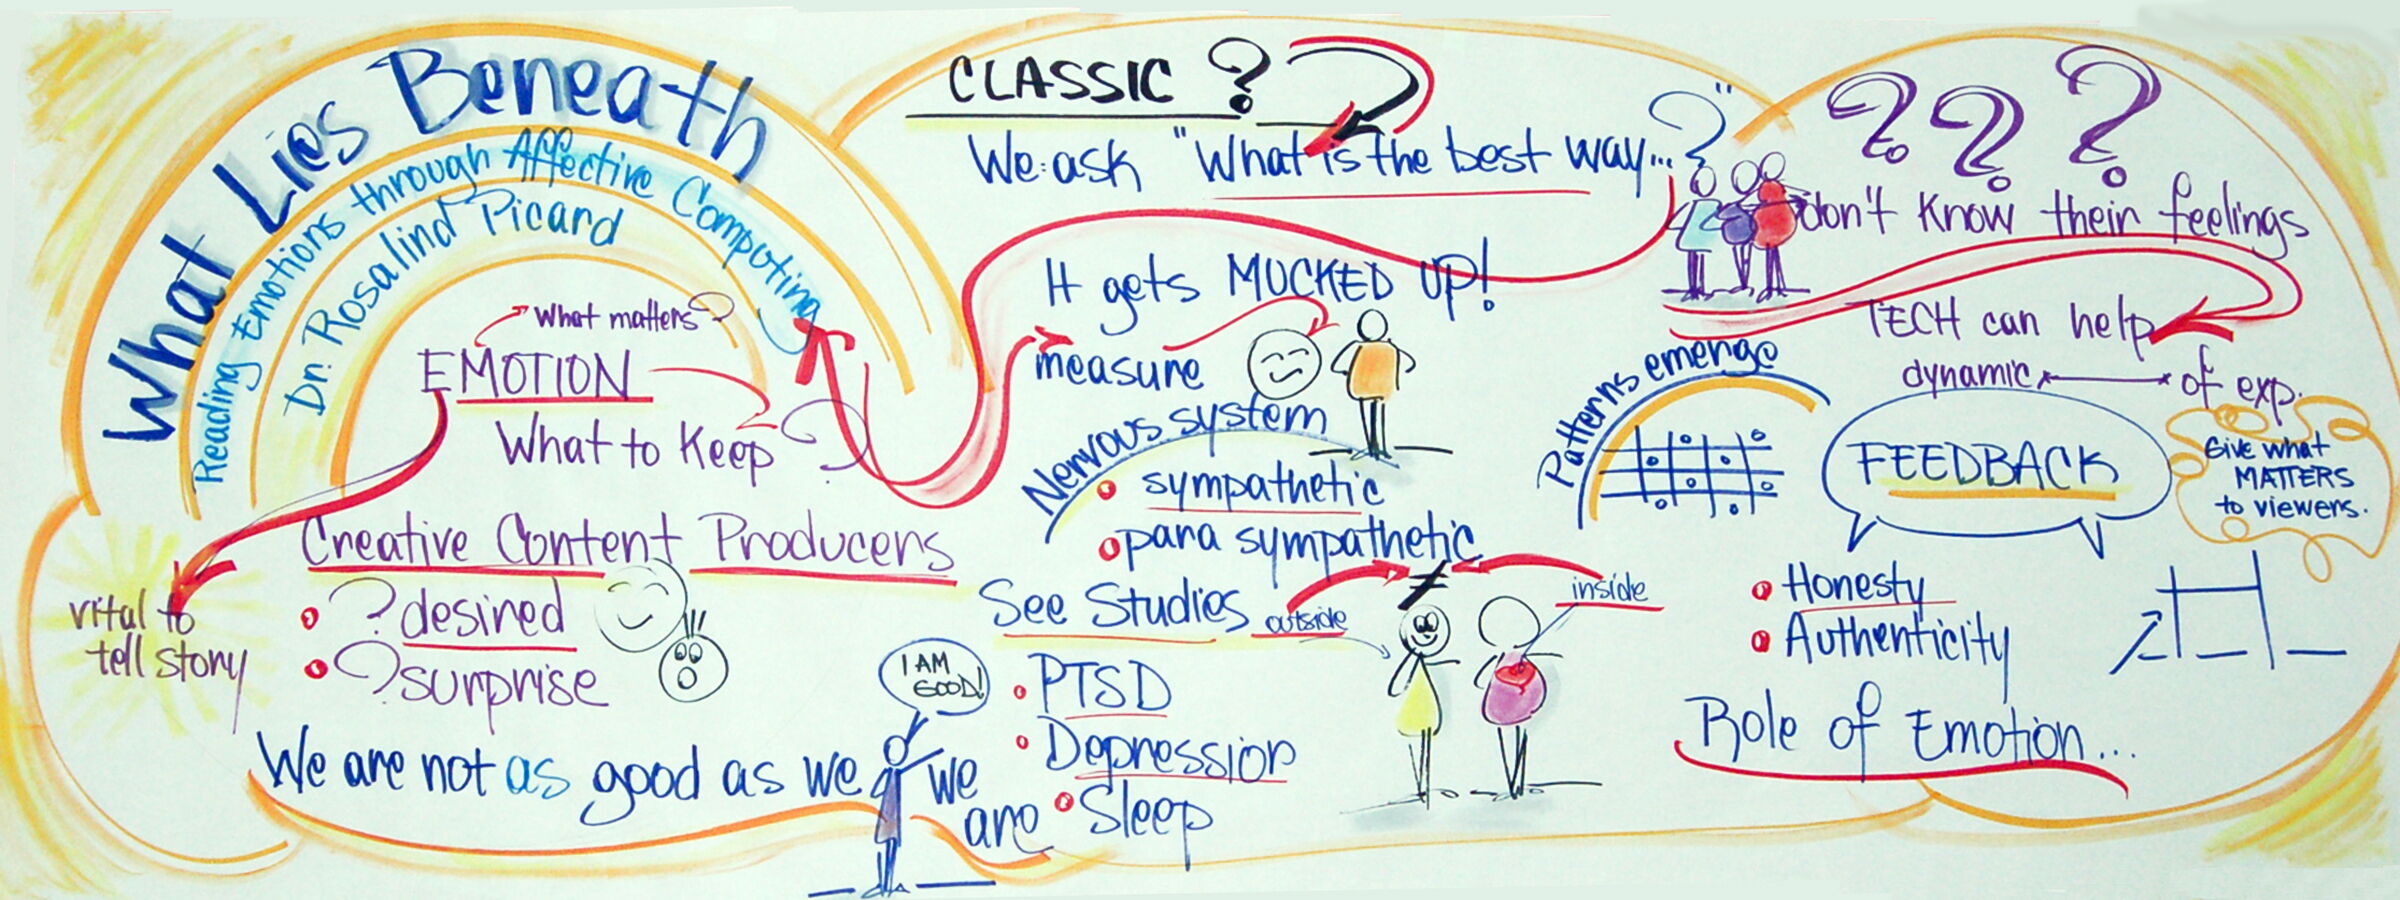 What Lies Beneath
Reading Emotions through Affective Computing
Dr. Rosalind Picard
What matters?
EMOTION
What to Keep?
vital to
tell story
Creative Content Producers
? desired
? surprise
We are not as good as we
we
are
I AM
GOOD!
CLASSIC ?
We ask "What is the best way...?"
It gets MUCKED UP!
measure
Nervous system
sympathetic
para sympathetic
See Studies
outside
≠
inside
PTSD
Depression
Sleep
? ? ?
don't know their feelings
TECH can help
dynamic of exp.
Patterns emerge
FEEDBACK
Give what
MATTERS
to viewers.
Honesty
Authenticity
Role of Emotion...